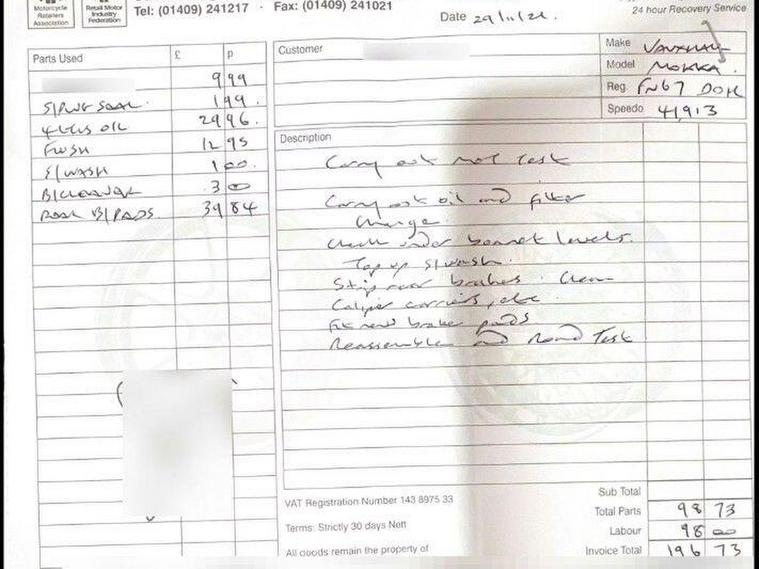 Motorcycle Retailers Association
Retail Motor Industry Federation
Tel: (01409) 241217 · Fax: (01409) 241021
Date 29/11/21.
24 hour Recovery Service
Parts Used £ p
Customer
Make VAUXHALL
Model MOKKA.
Reg.
Speedo 41913
9 99
S/PLUG SEAL. 1 99.
4 LTRS OIL 29 96.
FLUSH 12 95
S/WASH 1 00.
B/CLEANER 3 00
REAR B/PADS. 39 84
Description
Carry out mot test
Carry out oil and filter
change.
Check under bonnet levels.
Top up s/wash.
Strip rear brakes. Clean
Caliper carriers, etc
Fit new brake pads
Reassemble and Road Test
VAT Registration Number 143 8975 33
Terms: Strictly 30 days Nett
All goods remain the property of
Sub Total
Total Parts 98 73
Labour 98 00
Invoice Total 196 73